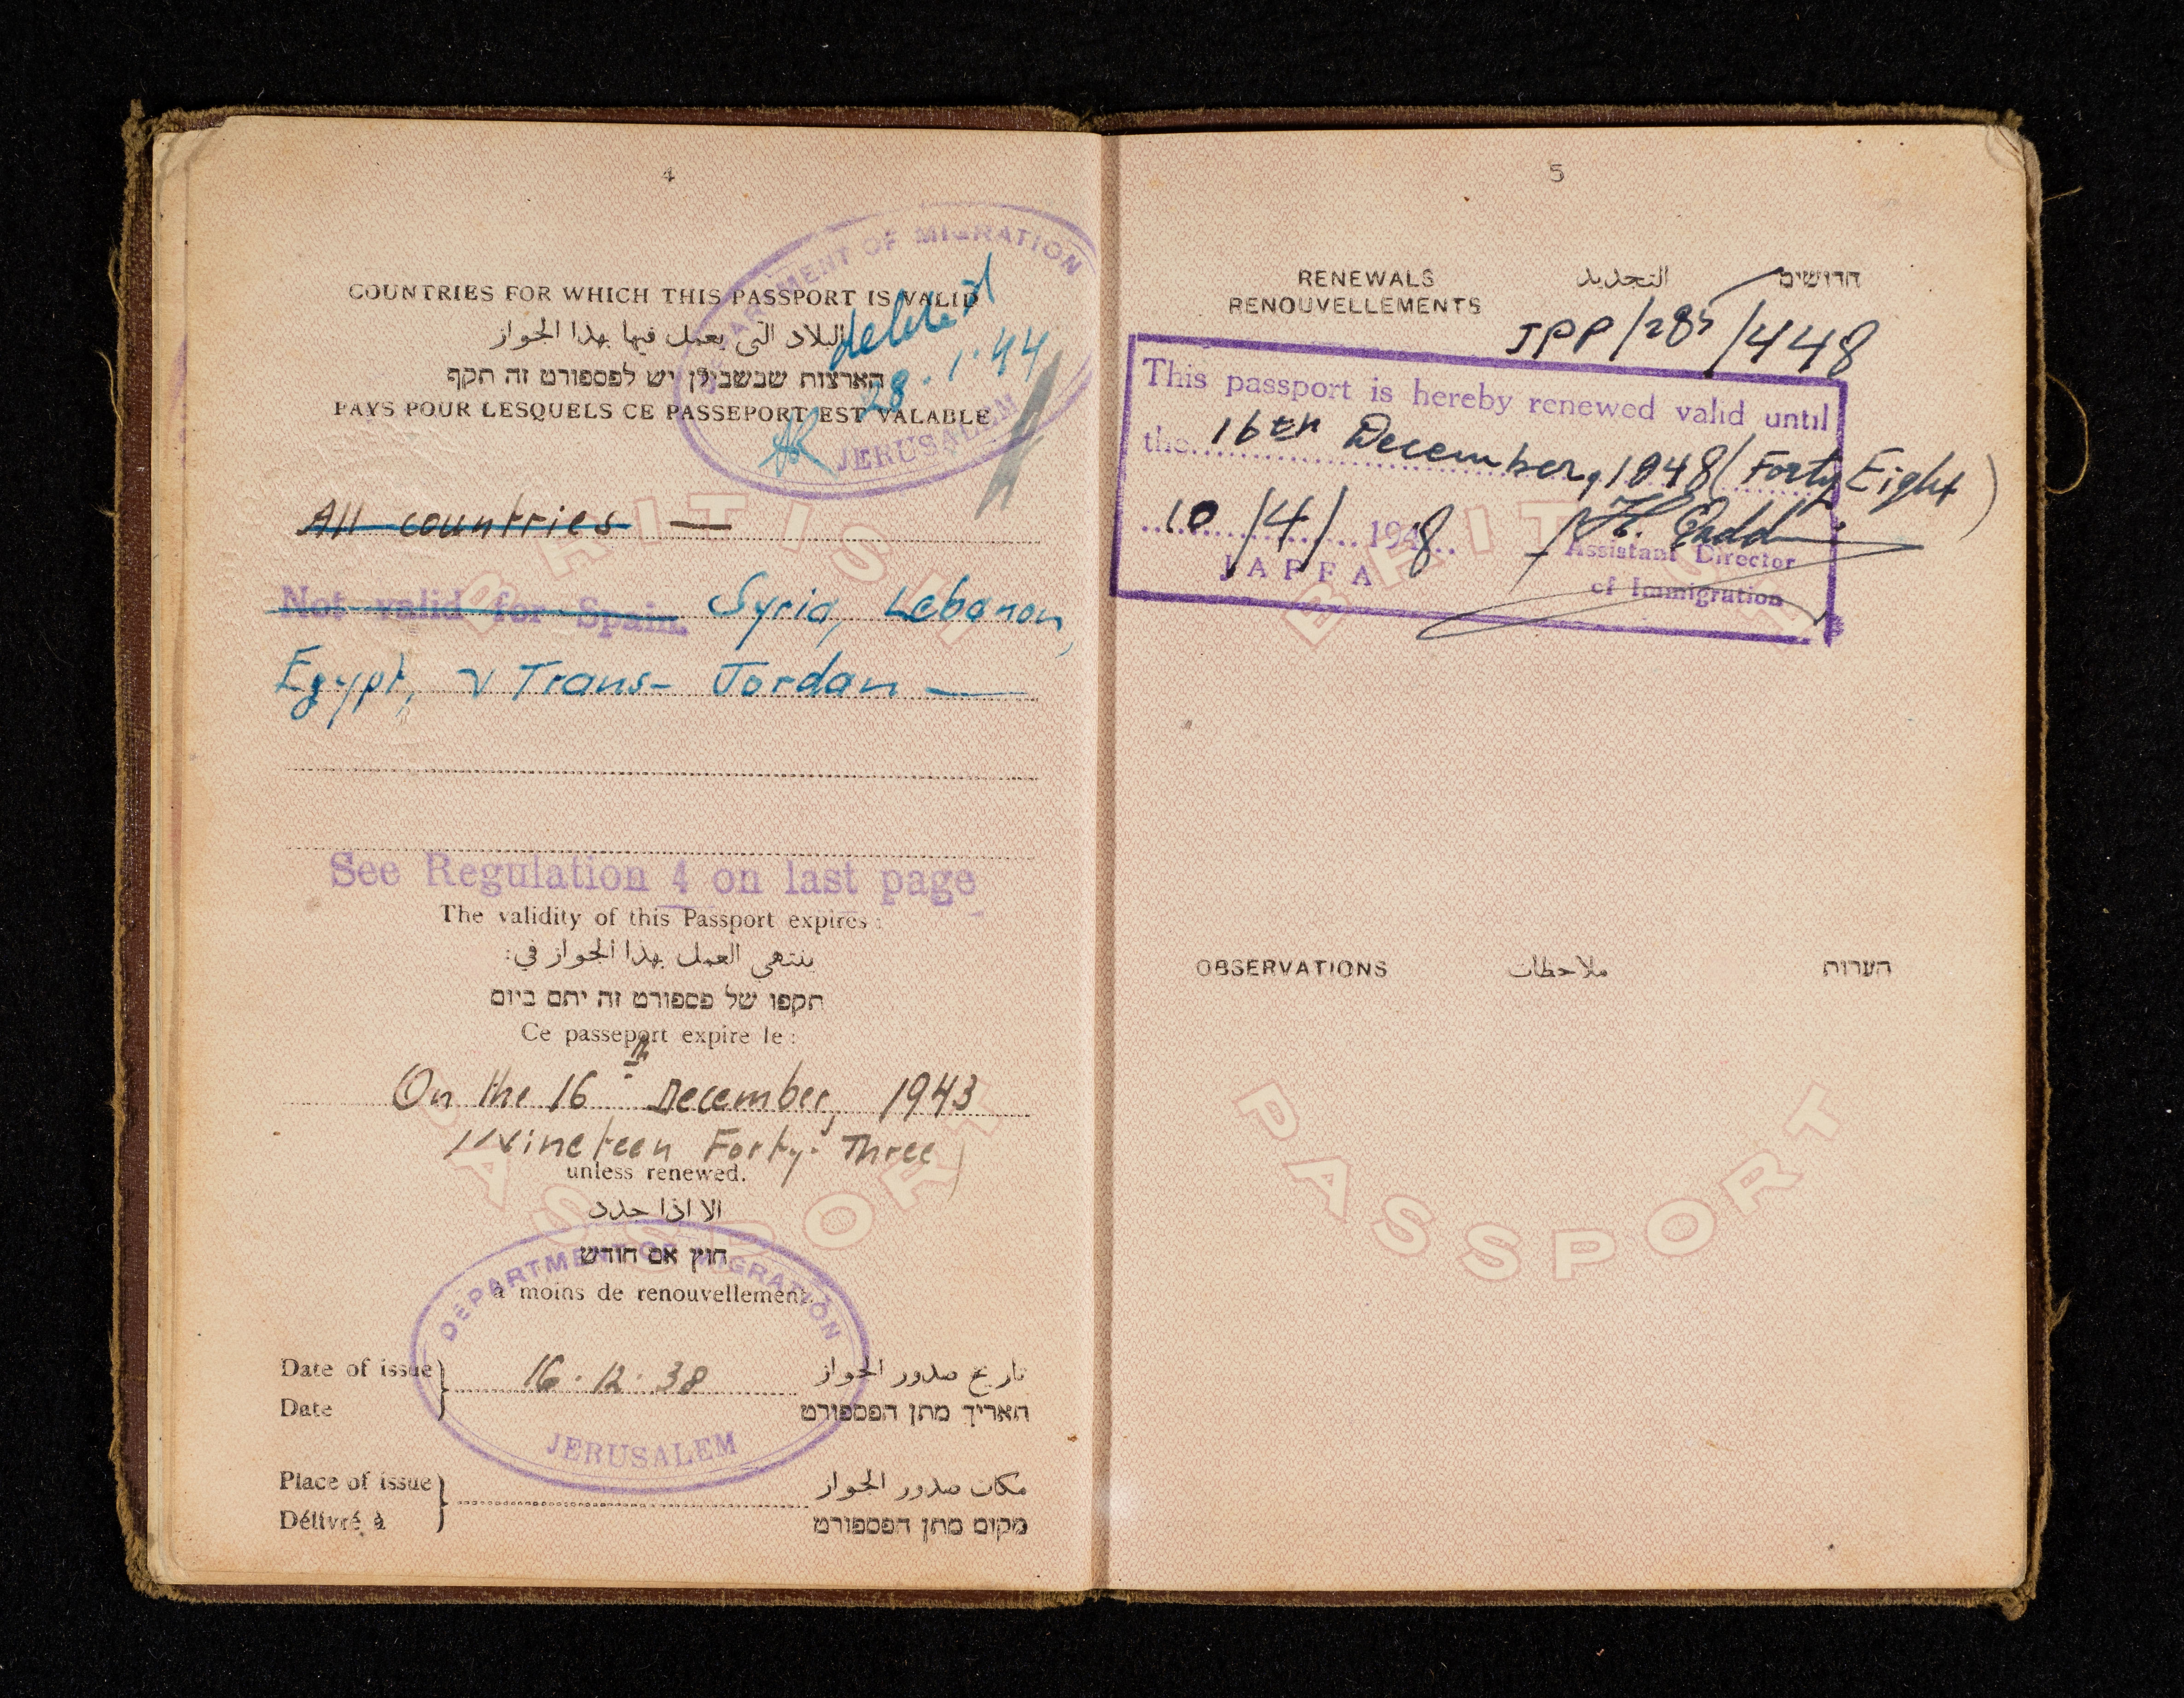 4
DEPARTMENT OF MIGRATION
JERUSALEM
COUNTRIES FOR WHICH THIS PASSPORT IS VALID
البلاد التي يعمل فيها بهذا الجواز
הארצות שבשבילן יש לפספורט זה תקף
PAYS POUR LESQUELS CE PASSEPORT EST VALABLE
deleted
28.1.44
All countries —
Not valid for Spain. Syria, Lebanon,
Egypt, & Trans-Jordan —
BRITISH
See Regulation 4 on last page
The validity of this Passport expires:
ينتهي العمل بهذا الجواز في:
תקפו של פספורט זה יתם ביום
Ce passeport expire le:
On the 16th December, 1943
Nineteen Forty-Three)
unless renewed.
الا اذا جدد
חוץ אם חודש
à moins de renouvellement.
PASSPORT
DEPARTMENT OF MIGRATION
JERUSALEM
Date of issue 16.12.38 تاريخ صدور الجواز
Date תאריך מתן הפספורט
Place of issue مكان صدور الجواز
Délivré à מקום מתן הפספורט
5
RENEWALS التجديد חדושים
RENOUVELLEMENTS
JPP/285/448
This passport is hereby renewed valid until
the 16th December, 1948 (Forty Eight)
10/4/1948
JAFFA
Assistant Director
of Immigration
BRITISH
OBSERVATIONS ملاحظات הערות
PASSPORT